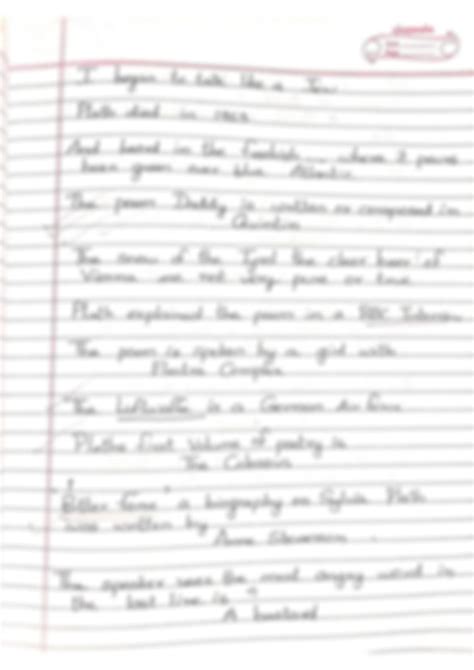 I began to talk like a Jew
Plath died in 1963
And head in the freakish ... where it pours
bean green over blue Atlantic
The poem Daddy is written or composed in
Quintin
The snow of the Tyrol the clear beer of
Vienna are not very pure or true
Plath explained the poem in a BBC Interview
The poem is spoken by a girl with
Electra Complex
The Luftwaffe is a German Air force
Plaths first Volume of poetry is
The Colossus
"Bitter fame" a biography on Sylvia Plath
was written by
Anne Stevenson
The speaker uses the most angry word in
the last line is
A bastard